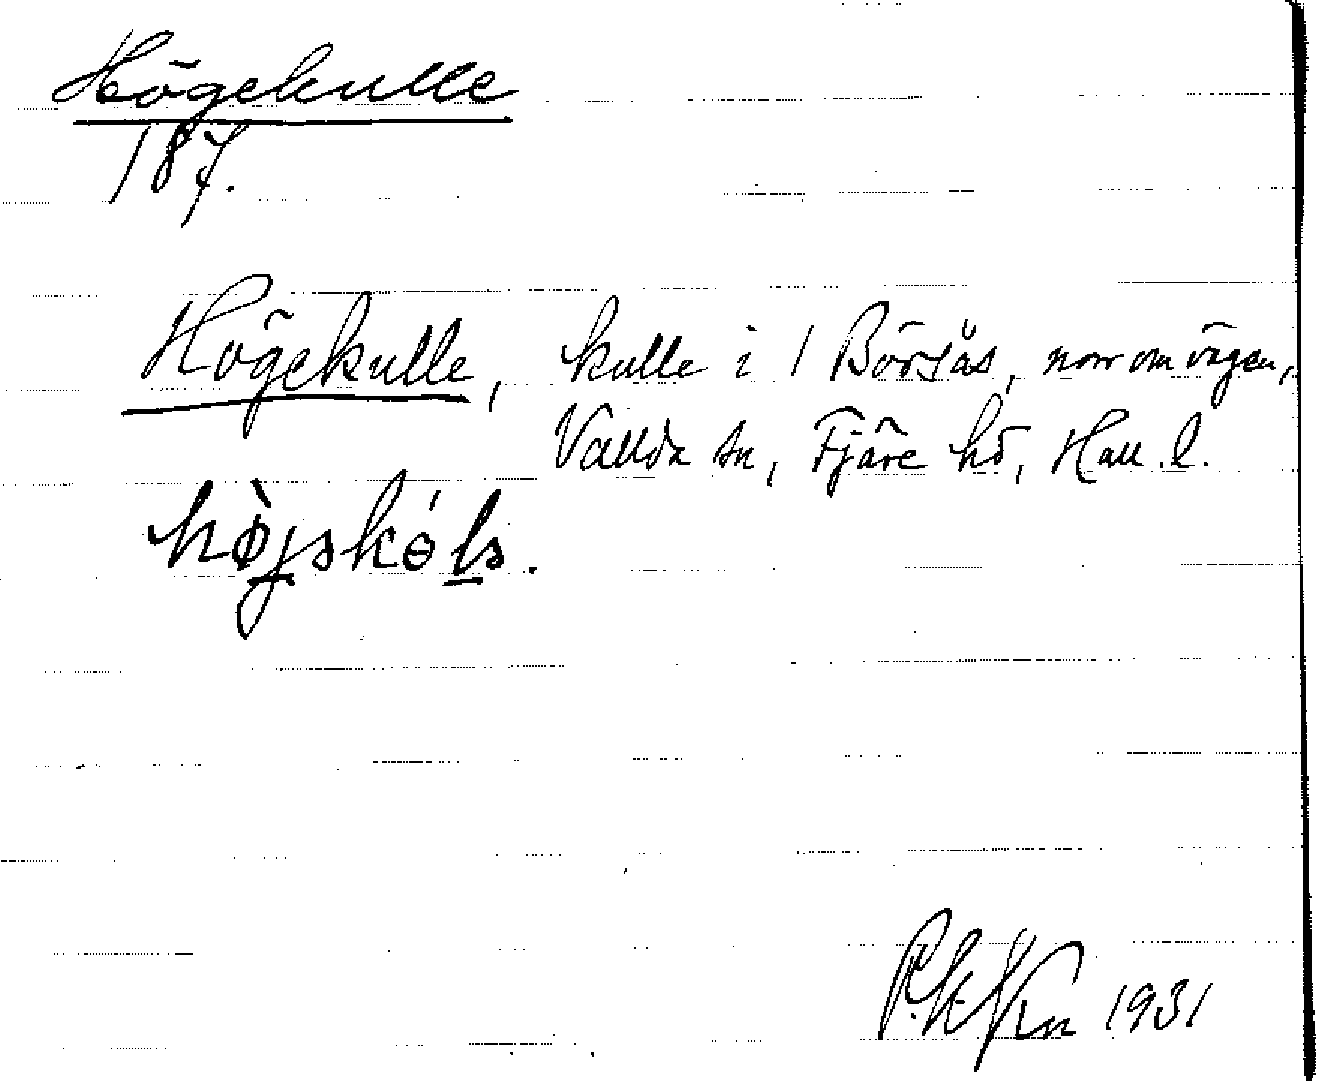 Högekulle
187.
Högekulle, kulle i 1 Börsås, norr om vägen,
Vallda sn, Fjäre hd, Hall. l.
hø̀jskó ls.
1931